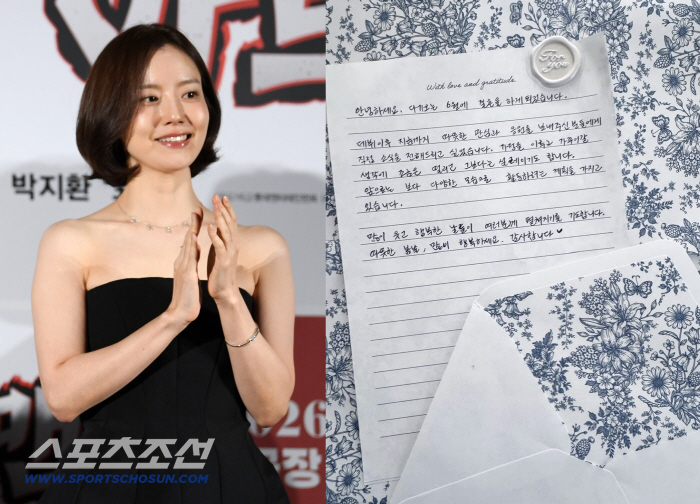 박지환
26
극장
스포츠조선
WWW.SPORTSCHOSUN.COM
For you
With love and gratitude.
안녕하세요. 다가오는 6월에 결혼을 하게 되었습니다.
데뷔이후 지금까지 따뜻한 관심과 응원을 보내주신 분들에게
직접 소식을 전해드리고 싶었습니다. 가정을 이루고 가꾸어갈
생각에 조금은 떨리고 그보다 더 설레이기도 합니다.
앞으로는 보다 다양한 모습으로 활동하려는 계획을 가지고
있습니다.
많이 웃고 행복한 날들이 여러분께 펼쳐지기를 기도합니다.
따뜻한 봄날, 많이 행복하세요. 감사합니다 ♥